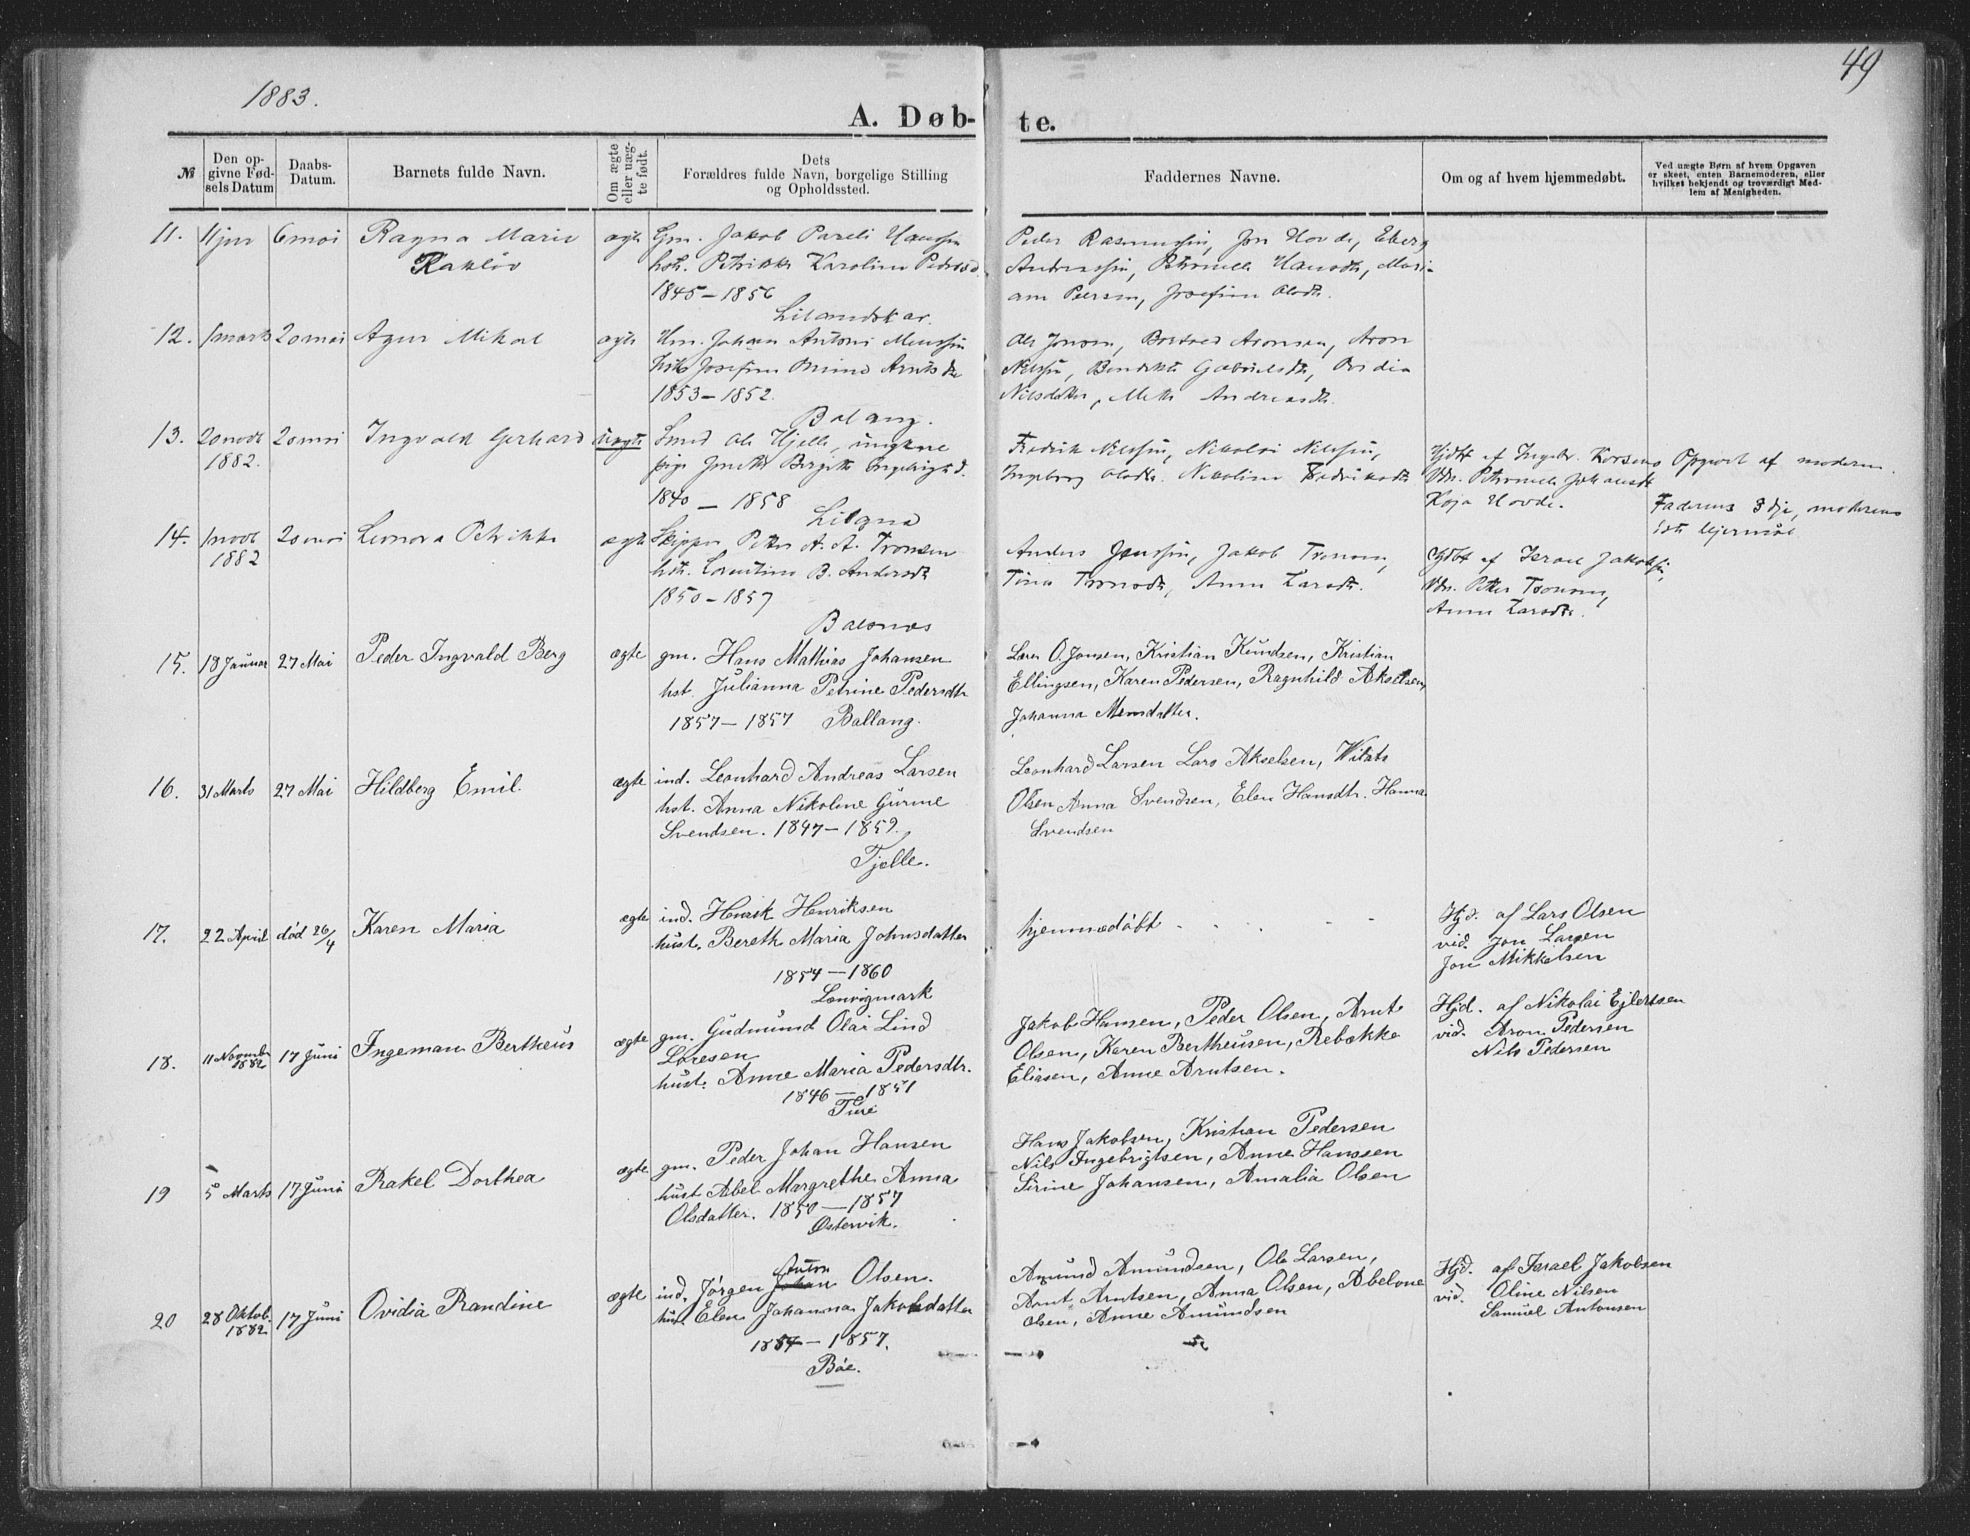 1883.
49
A. Døb-te.
№
Den opgivne Fødsels Datum
Daabs-Datum.
Barnets fulde Navn.
Om ægte eller uægte født.
Dets Forældres fulde Navn, borgelige Stilling og Opholdssted.
Faddernes Navne.
Om og af hvem hjemmedøbt.
Ved uægte Børn af hvem Opgaven er skeet, enten Barnemoderen, eller hvilket bekjendt og troværdigt Medlem af Menigheden.
11. 11 jan 6 mai Ragna Marie ægte Gm. Jakob Pareli Hanssen
hst. Petrikke Karoline
1845 – 1856
Peder Rasmussen, Jon Hovde,
12. 1 marts 20 mai Mikal ægte Johan Antoni
hst. Josefine
1853 – 1852.
Ole Jonsen, Aronsen, Aron
Nilssen, Gabrielsdt, Ovidia
Nilsdatter, Andreasdt.
Balang.
13. 20 novbr 1882. 20 mai Ingvald Gerhard uægte Smed Ole Hjelle, ungkarl
pige Birgitte
1840 – 1858
Fredrik Nilssen, Nikolai Nilssen,
Ingeborg Olsdt. Nikoline Fredriksdt
Hjdbt af Ingebr.
Kaja Hovde.
Opgivet af moderen.
Faderens 3die, moderens
1ste leiermål
14. 1 novbr 1882 20 mai Leonora Petrikke ægte Skipper Peter A. A. Tronsen
hst. B. Andersdt
1850 – 1857
Balsnes
Anders Jenssen, Jakob Tronsen,
Tina Tronsdt, Anna Larsdt.
Hjdbt af Israel Jakobsen,
Vdn. Petter Tronsen,
Anna Larsdt.
15. 18 Januar 27 Mai Peder Ingvald Berg ægte gm. Hans Mathias Johansen
hst. Julianna Petrine Pedersdtr
1857 – 1857 Ballang.
Lars O. Jonsen, Kristian Knudsen, Kristian
Ellingsen, Karen Pedersen, Ragnhild Akselsen,
Johanna Monsdatter.
16. 31 Marts 27 Mai Hildberg Emil. ægte ind. Leonhard Andreas Larsen
hst. Anna Nikoline Gurine
Svendsen. 1847 – 1859.
Tjelle.
Leonhard Larsen Lars Akselsen, Wilats
Olsen Anna Svendsen, Elen Hansdtr. Hanna
Svendsen
17. 22 April død 26/4 Karen Maria ægte ind. Henrik Henriksen
hust. Bereth Maria Johnsdatter
1854 – 1860
Lønvigmark
hjemmedøbt
Hjd. af Lars Olsen
vid. Jon Larsen
Jon Mikkelsen
18. 11 November 1882 17 Juni Ingeman Bertheus ægte gm. Gudmund Olai Lind
Loresen
hust. Anne Maria Pedersdtr.
1846 – 1851
Jakob Hansen, Peder Olsen, Arnt
Olsen, Karen Bertheusen, Rebække
Eliasen, Anne Arntsen.
Hjd. af Nikolai Ejlertsen
vid. Aron Pedersen
Nils Pedersen
19 5 Marts 17 Juni Rakel Dorthea ægte gm. Peder Johan Hansen
hust Abel Margrethe Anna
Olsdatter. 1850 – 1857
Østervik.
Hans Jakobsen, Kristian Pedersen
Nils Ingebrigtsen, Anne Hanssen
Sirine Johansen, Amalia Olsen
20 28 Oktob. 1882 17 Juni Ovidia Randine ægte ind. Jørgen Johan Olsen.
hust. Elen Johanna Jakobsdatter
1854 – 1857.
Bøe.
Amund Amundsen, Ole Larsen,
Arnt Arntsen, Anna Olsen, Abelone
Olsen, Anne Amundsen
Hjd. af Israel Jakobsen
vid. Oline Nilsen
Samuel Antonsen